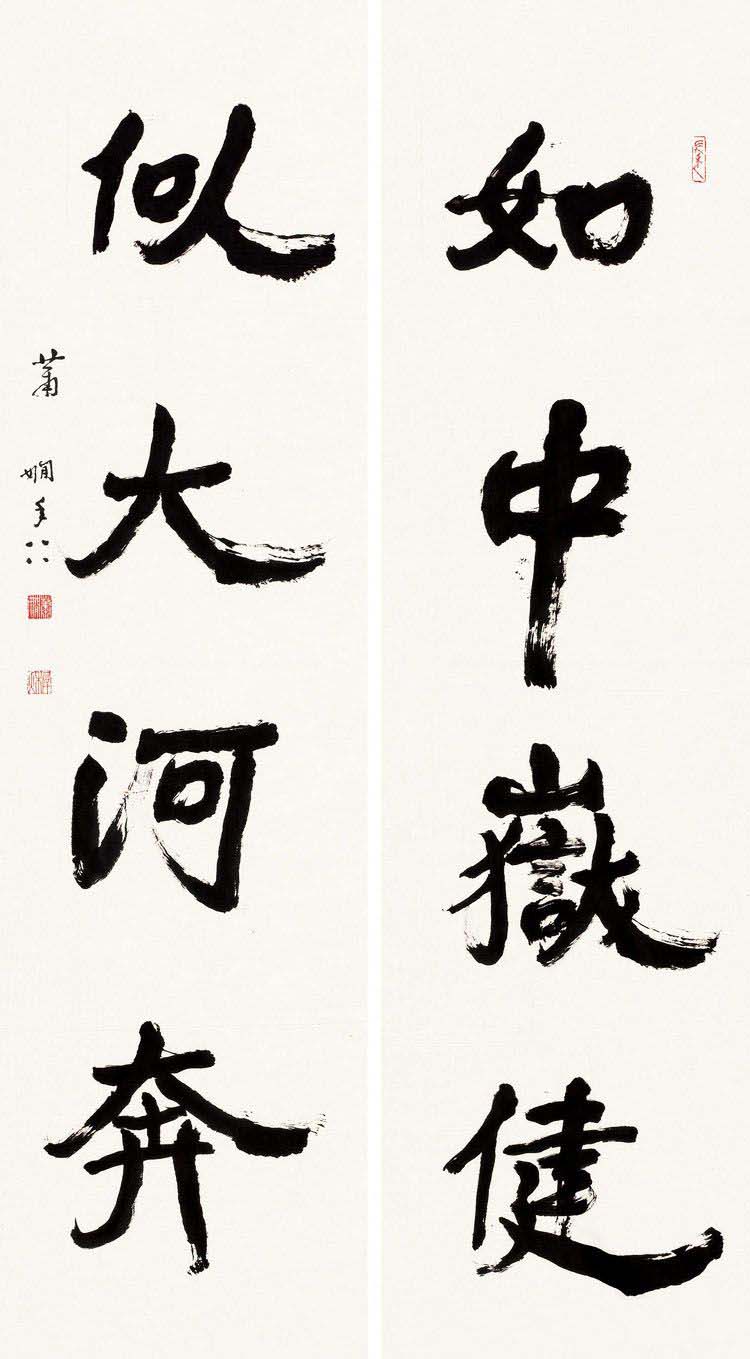 如中嶽健
似大河奔
蕭嫻年八八